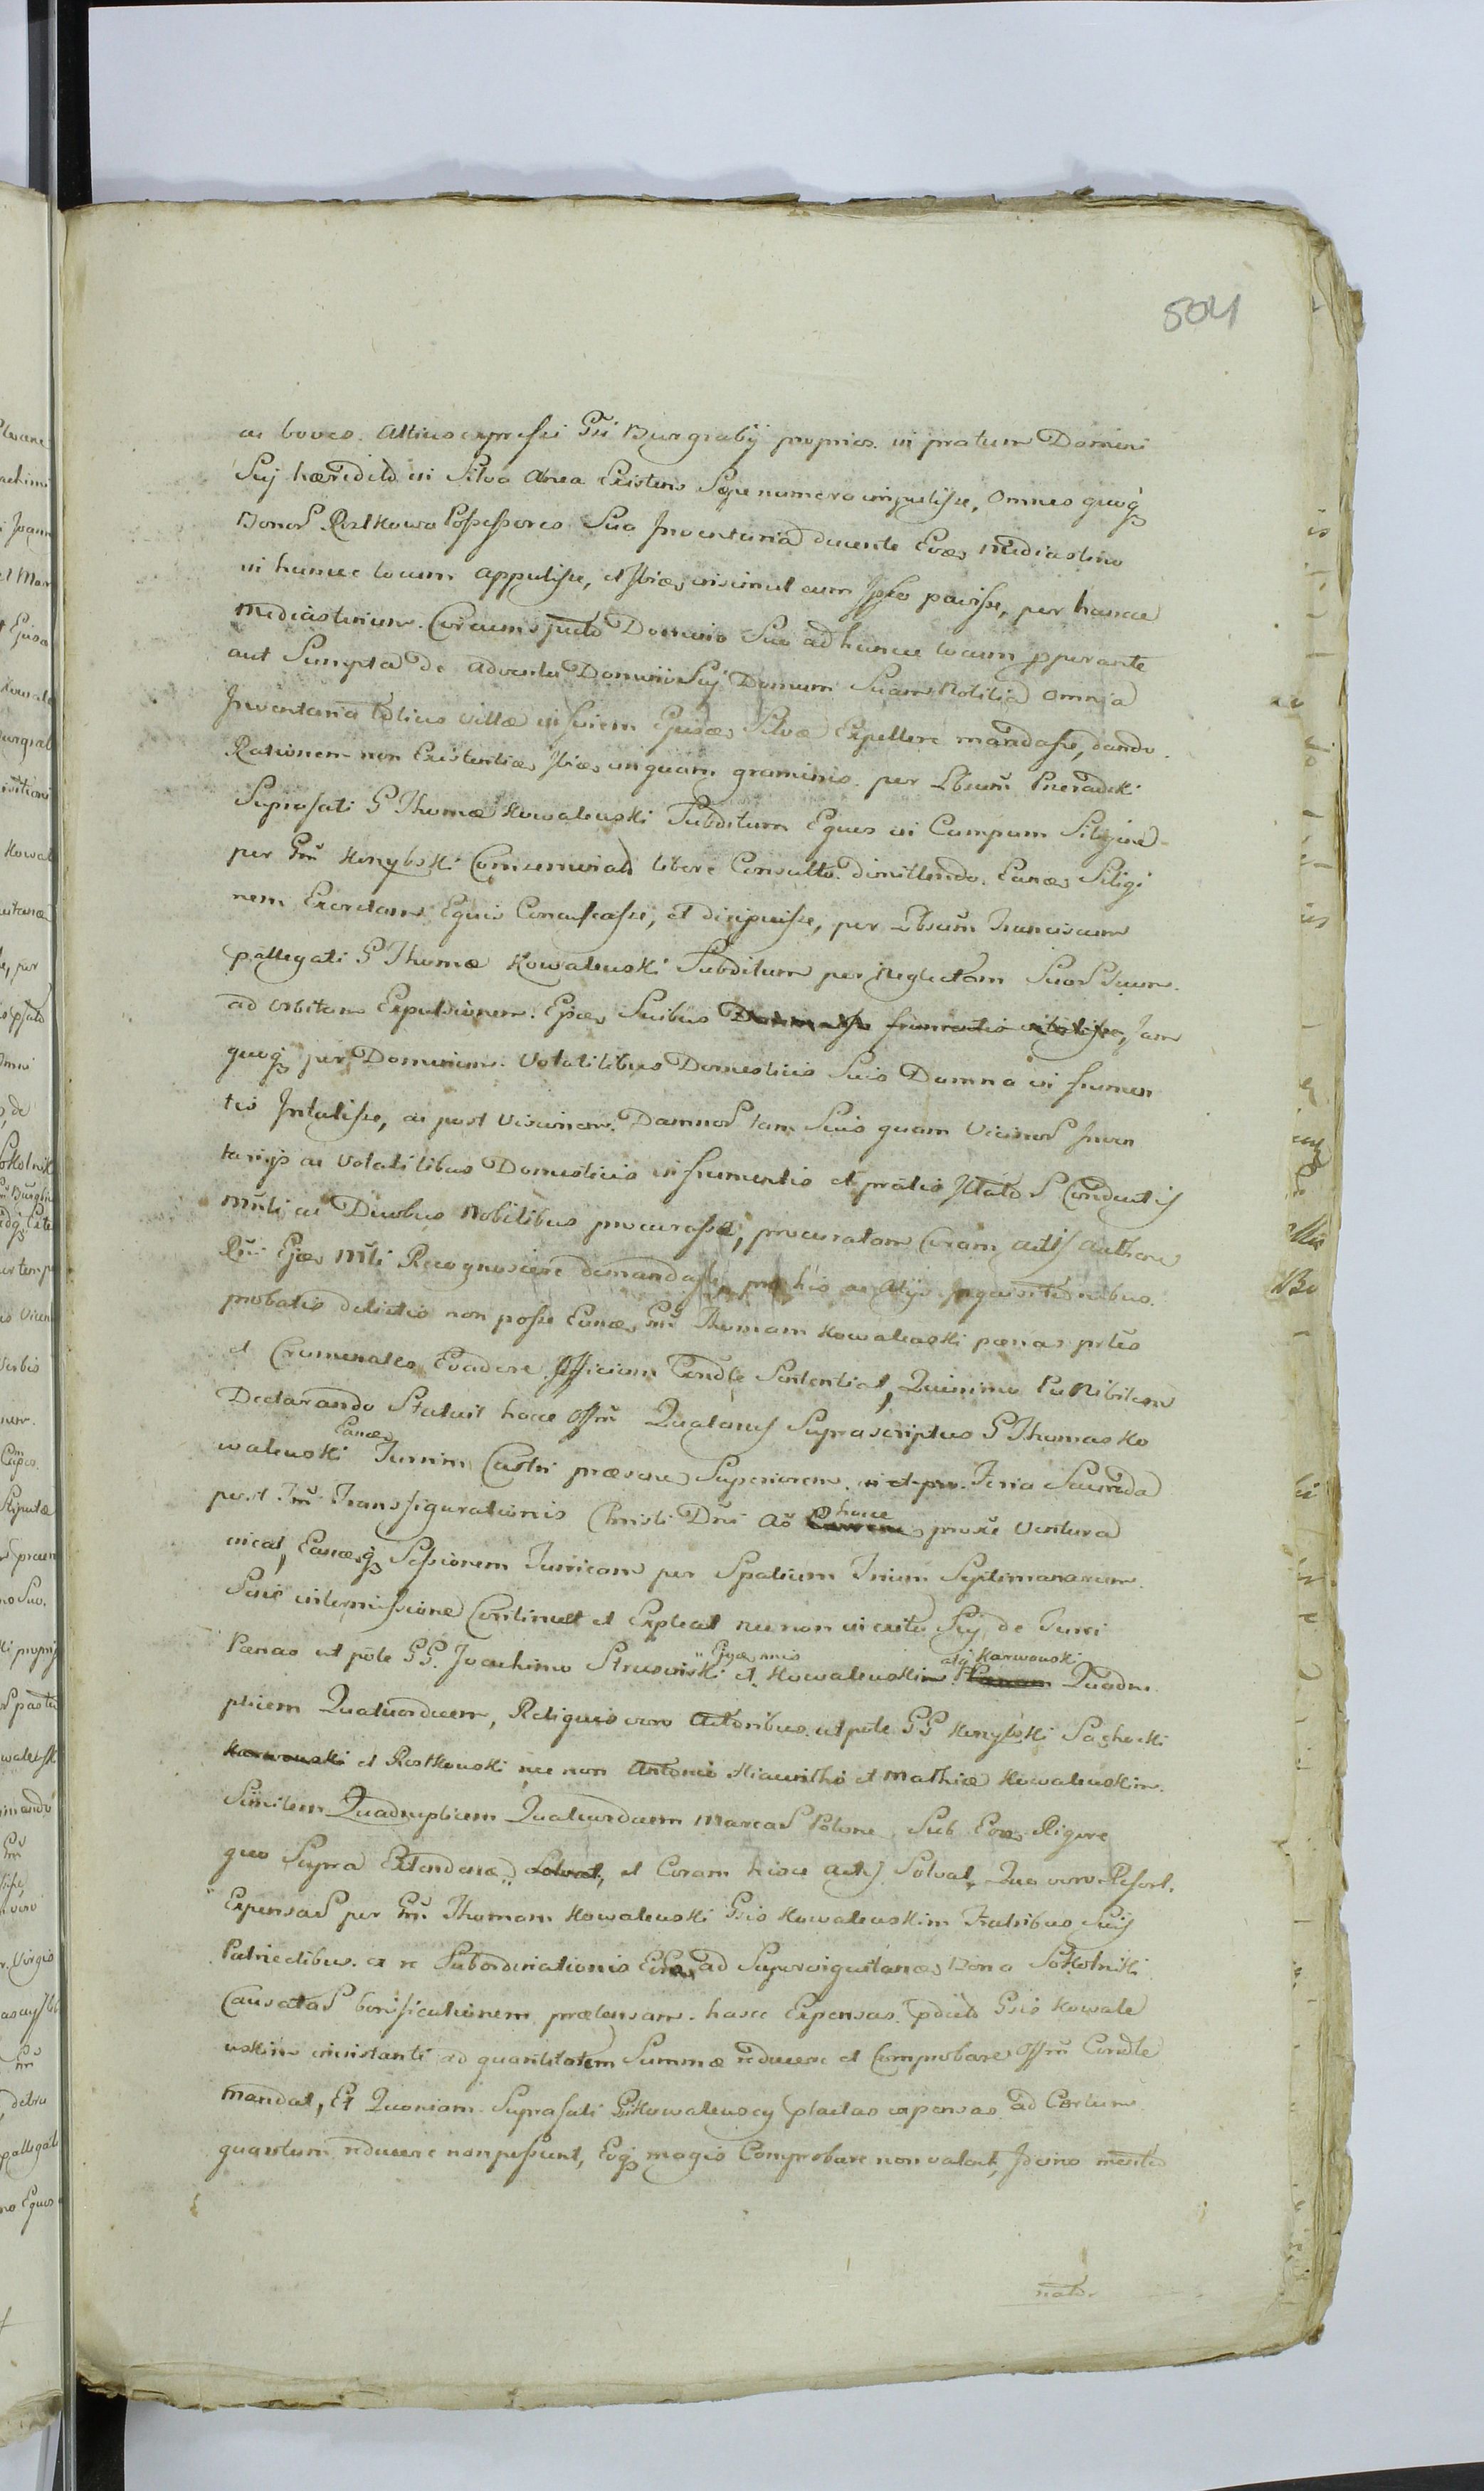 504
ac boves. Altius expressi Gsi Burgrabij proprios in pratum Domini
Suj hæredit͠d in Silva Area Existens Sæpe numero impulisse, Omnes quoq̨
Bonor̃ Rostkowo Possessores Sua Inventaria ducente Eod̃ Mediastino
in huncce locum appulisse, et Ibid̃ insimul cum Ipso pavisse, per hancce
Mediastinum Circumsp̃ecto Domino Suo ad huncce locum pperante
aut Sumpta de adventu Domini Suj Domum Suam Notitia Omnia
Inventaria tõtius Villæ in finem Ejusd̃ Silvæ Expellere mandasse, dando
Rationem non Existentiæ Ibid̃ in quam graminis per Lbsum̃ Pneradzki
Suprafati G Thomæ Kowalewski Subditum Equos in Campum Siligine
per Gm̃ Konybski Conseminat͠d libere Consulto dimittendo, Eand̃ Siligi
nem Exoretam Equis Conculcasse, et diripuisse, per Lbsum̃ Franciscum
pallegati G Thomæ Kowalewski Subditum per Neglectam Suor̃ Suum
ad Orbitam Expulsionem Ejusd̃ Suibus frumentis, Jam
quoq̨ per Dominum Volatilibus Domesticis Suis Damna in frumen
tis Intulisse, ac post Visionem Damnor̃ tam Suis quam Vicinor̃ Inven
tarijs ac Volatilibus Domesticis in frumentis et pratis Illat͠d S Conductis
Mñli ac Duobus Nobilibus procurasse, procuratam Coram actis authen
Rñi Ejusd̃ Mñli Recognoscere demandasse, pro his ac alijs Inquisitionibus
probatis delictis non posse Eund̃ Gm̃ Thomam Kowalewski pœnas prtẽs
et Crimenales Evadere Officium Cond̃le Sententiat, Quinimo Punibilem
Declarando Statuit hocce Off̃m Quatenus Suprascriptus G Thomas Ko
walewski Eand̃ Turrim Castri præsens Superiorem Feria Secunda
post Fm̃ Transfigurationis Christi Dñi Aõ hocce proxẽ Ventura
ineat, Eand̃q̨ Sessionem Turricam per Spatium Trium Septimanarum
Sine intermissione Continuet et Expleat nec non in exitu Suj de Turri
Pœnas ut põte GG. Joachimo Strusinski et Kowalewskim atq̨ Karwowski Quadru
plicem Quatuordecem, Reliquis vero Actoribus ut põte GG Konybski Sachocki
Karwowski et Rostkowski nec non Antonio Miawitho et Mathiæ Kowalewskim
Similem Quadruplicem Quatuordecem Marcar̃ Polone Sub Eod̃ Rigore
quo Supra Extenden͠d Solvat, et Coram hisce actis Solvat, Quo vero Resort.
Expensar̃ per Gm̃ Thomam Kowalewski Gsis Kowalewskim Fratribus Suis
Patruelibus ex re Subordinationis Eor̃ ad Supervigilan͠d Bona Sokolniki
Causatar̃ bonificationem prætensam hasce Expensas pdict͠d Gsis Kowale
wskim in instanti ad quantitatem Summæ reducere et Comprobare Off̃m Cond̃le
Mandat, Et Quoniam Suprafati Gsi Kowalewscy pfactas expensas ad Certum
quantum reducere non possunt, Eoq̨ magis Comprobare non valent, Idcirco mẽntio
nato